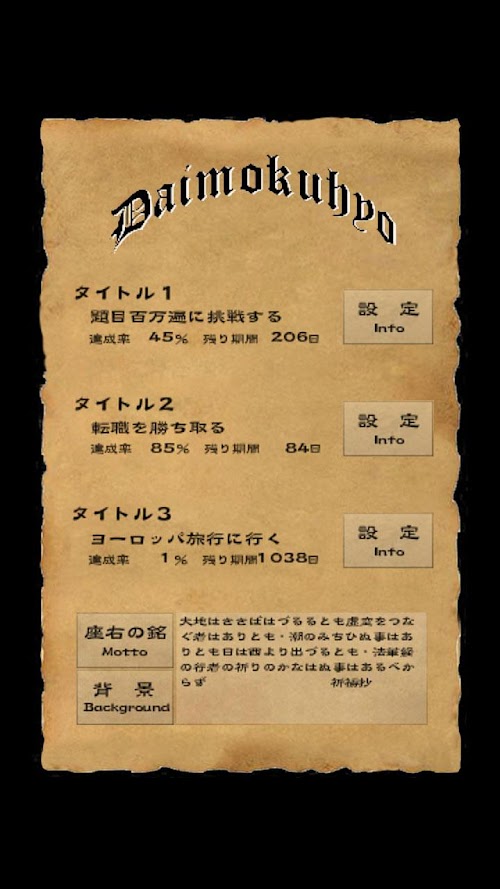 Daimokuhyo
タイトル1
題目百万遍に挑戦する
達成率 45% 残り期間 206日
設 定
Info
タイトル2
転職を勝ち取る
達成率 85% 残り期間 84日
設 定
Info
タイトル3
ヨーロッパ旅行に行く
達成率 1% 残り期間1038日
設 定
Info
座右の銘
Motto
大地はささばはづるるとも虚空をつな
ぐ者はありとも・潮のみちひぬ事はあ
りとも日は西より出づるとも・法華経
の行者の祈りのかなはぬ事はあるべか
らず 祈祷抄
背 景
Background